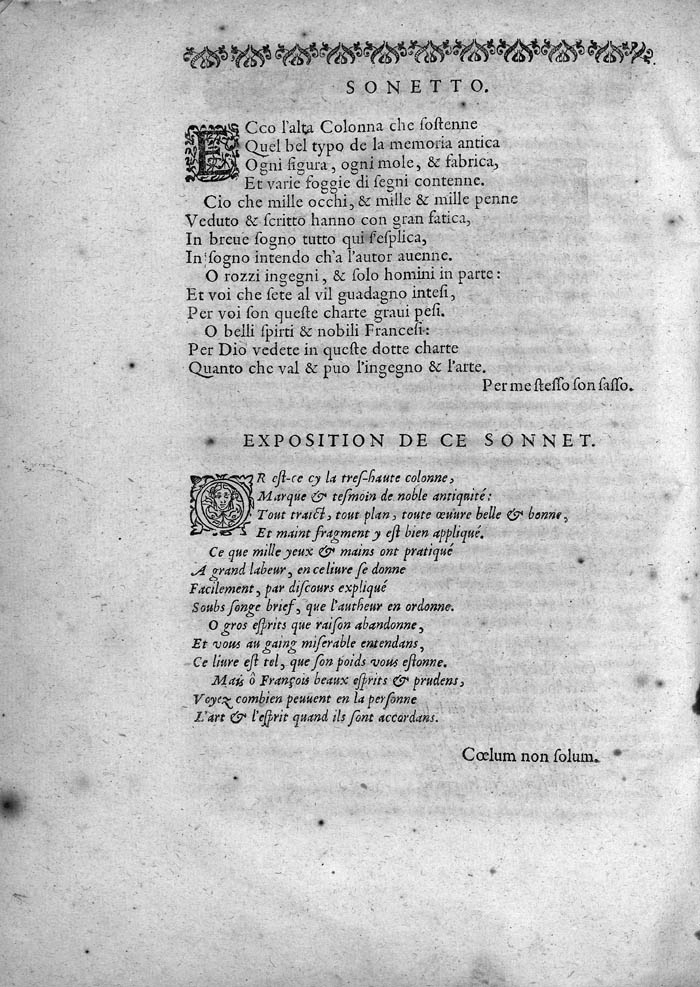 SONETTO.
ECco l'alta Colonna che ſoſtenne
Quel bel typo de la memoria antica
Ogni figura, ogni mole, & fabrica,
Et varie foggie di ſegni contenne.
Cio che mille occhi, & mille & mille penne
Veduto & ſcritto hanno con gran fatica,
In breue ſogno tutto qui ſ'eſplica,
In ſogno intendo ch'a l'autor auenne.
O rozzi ingegni, & ſolo homini in parte:
Et voi che ſete al vil guadagno inteſi,
Per voi ſon queſte charte graui peſi.
O belli ſpirti & nobili Franceſi:
Per Dio vedete in queſte dotte charte
Quanto che val & puo l'ingegno & l'arte.
Per me ſteſſo ſon ſaſſo.
EXPOSITION DE CE SONNET.
OR eſt-ce cy la treſ-haute colonne,
Marque & teſmoin de noble antiquité:
Tout traict, tout plan, toute œuure belle & bonne,
Et maint fragment y eſt bien appliqué.
Ce que mille yeux & mains ont pratiqué
A grand labeur, en ce liure ſe donne
Facilement, par diſcours expliqué
Soubs ſonge brief, que l'autheur en ordonne.
O gros eſprits que raiſon abandonne,
Et vous au gaing miſerable entendans,
Ce liure eſt tel, que ſon poids vous eſtonne.
Mais ô François beaux eſprits & prudens,
Voyez combien peuuent en la perſonne
L'art & l'eſprit quand ils ſont accordans.
Cœlum non ſolum.